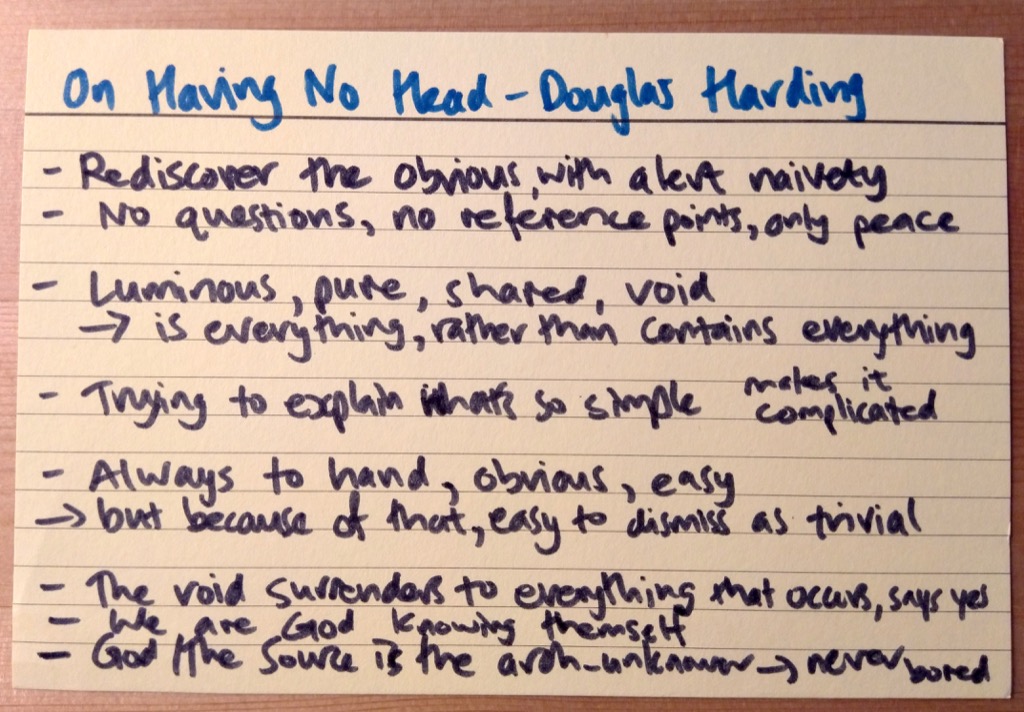 On Having No Head - Douglas Harding
- Rediscover the obvious, with alert naivety
- No questions, no reference points, only peace
- Luminous, pure, shared, void
→ is everything, rather than contains everything
- Trying to explain that's so simple makes it complicated
- Always to hand, obvious, easy
→ but because of that, easy to dismiss as trivial
- The void surrenders to everything that occurs, says yes
- We are God knowing themself
- God/the Source is the arch-unknower → never bored